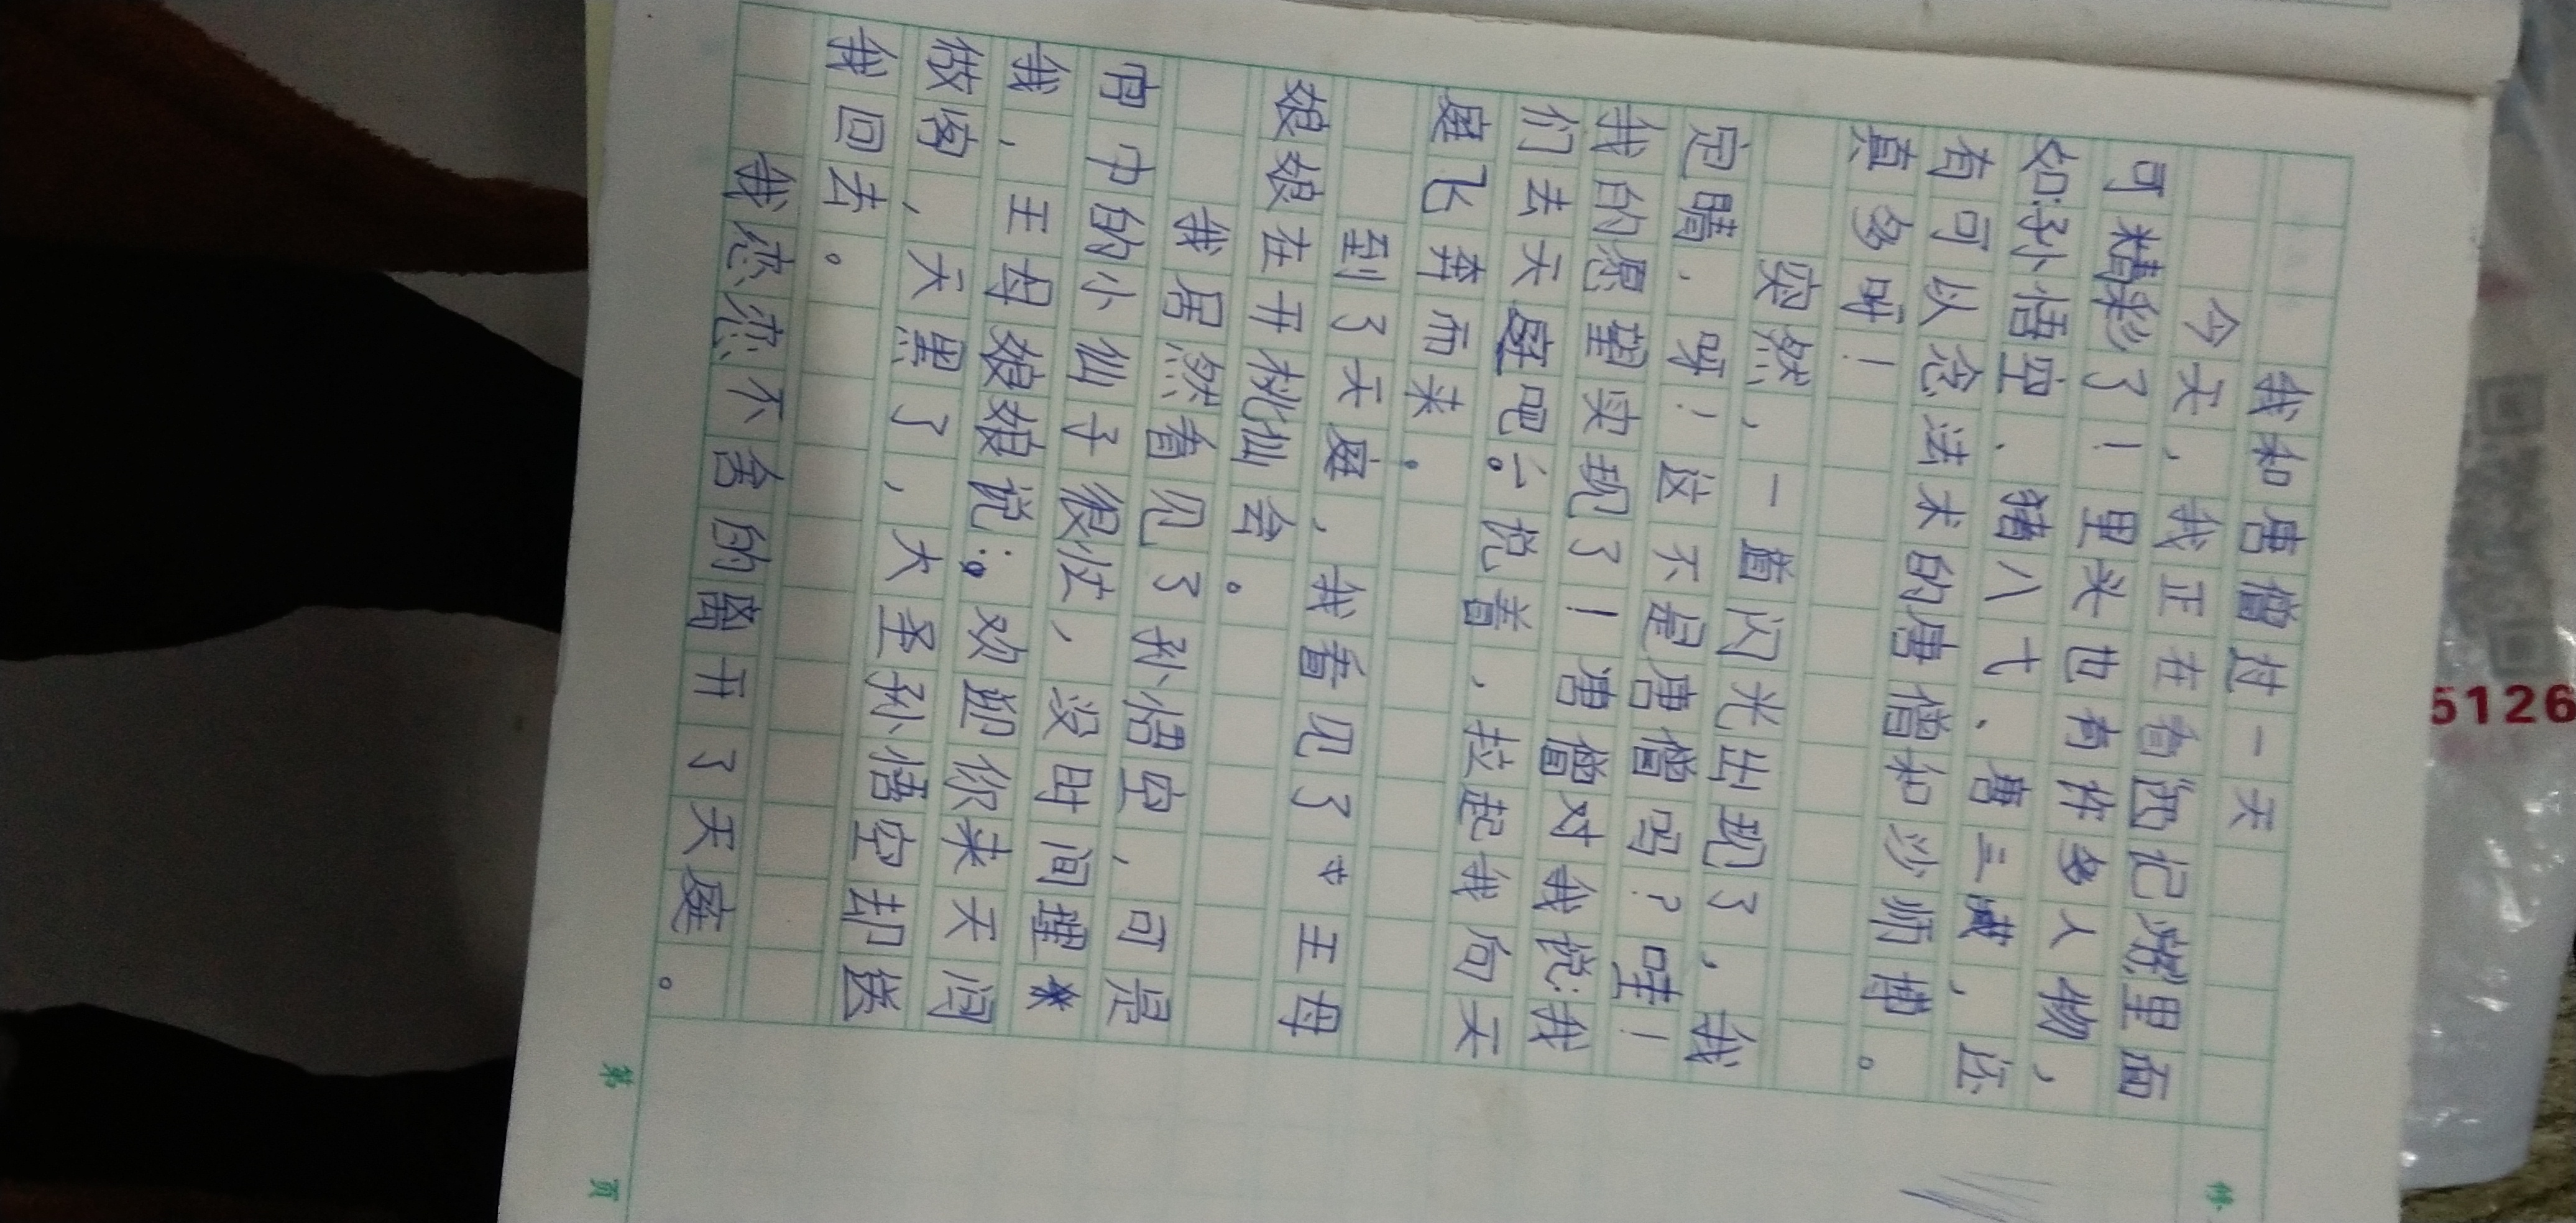 我和唐僧过一天
今天,我正在看西记游里面
可精彩了!里米也有许多人物,
如孙悟空、猪八七、唐三藏,还
有可以念法术的唐僧和沙师博。
真多呀!
突然,一道闪光出现了,我
定睛,呀!这不是唐僧吗?哇!
我的愿望实现了!唐僧对我说:我
们去天庭吧。说着,拉起我向天
庭飞奔而来。
到了天庭,我看见了王母
娘娘在开桃仙会。
我居然看见了孙悟空,可是
宫中的小仙子很忙,没时间理
我,王母娘娘说:欢迎你来天问
做客,天黑了,大圣孙悟空却送
我回去。
我恋恋不舍的离开了天庭。
第 页
5126